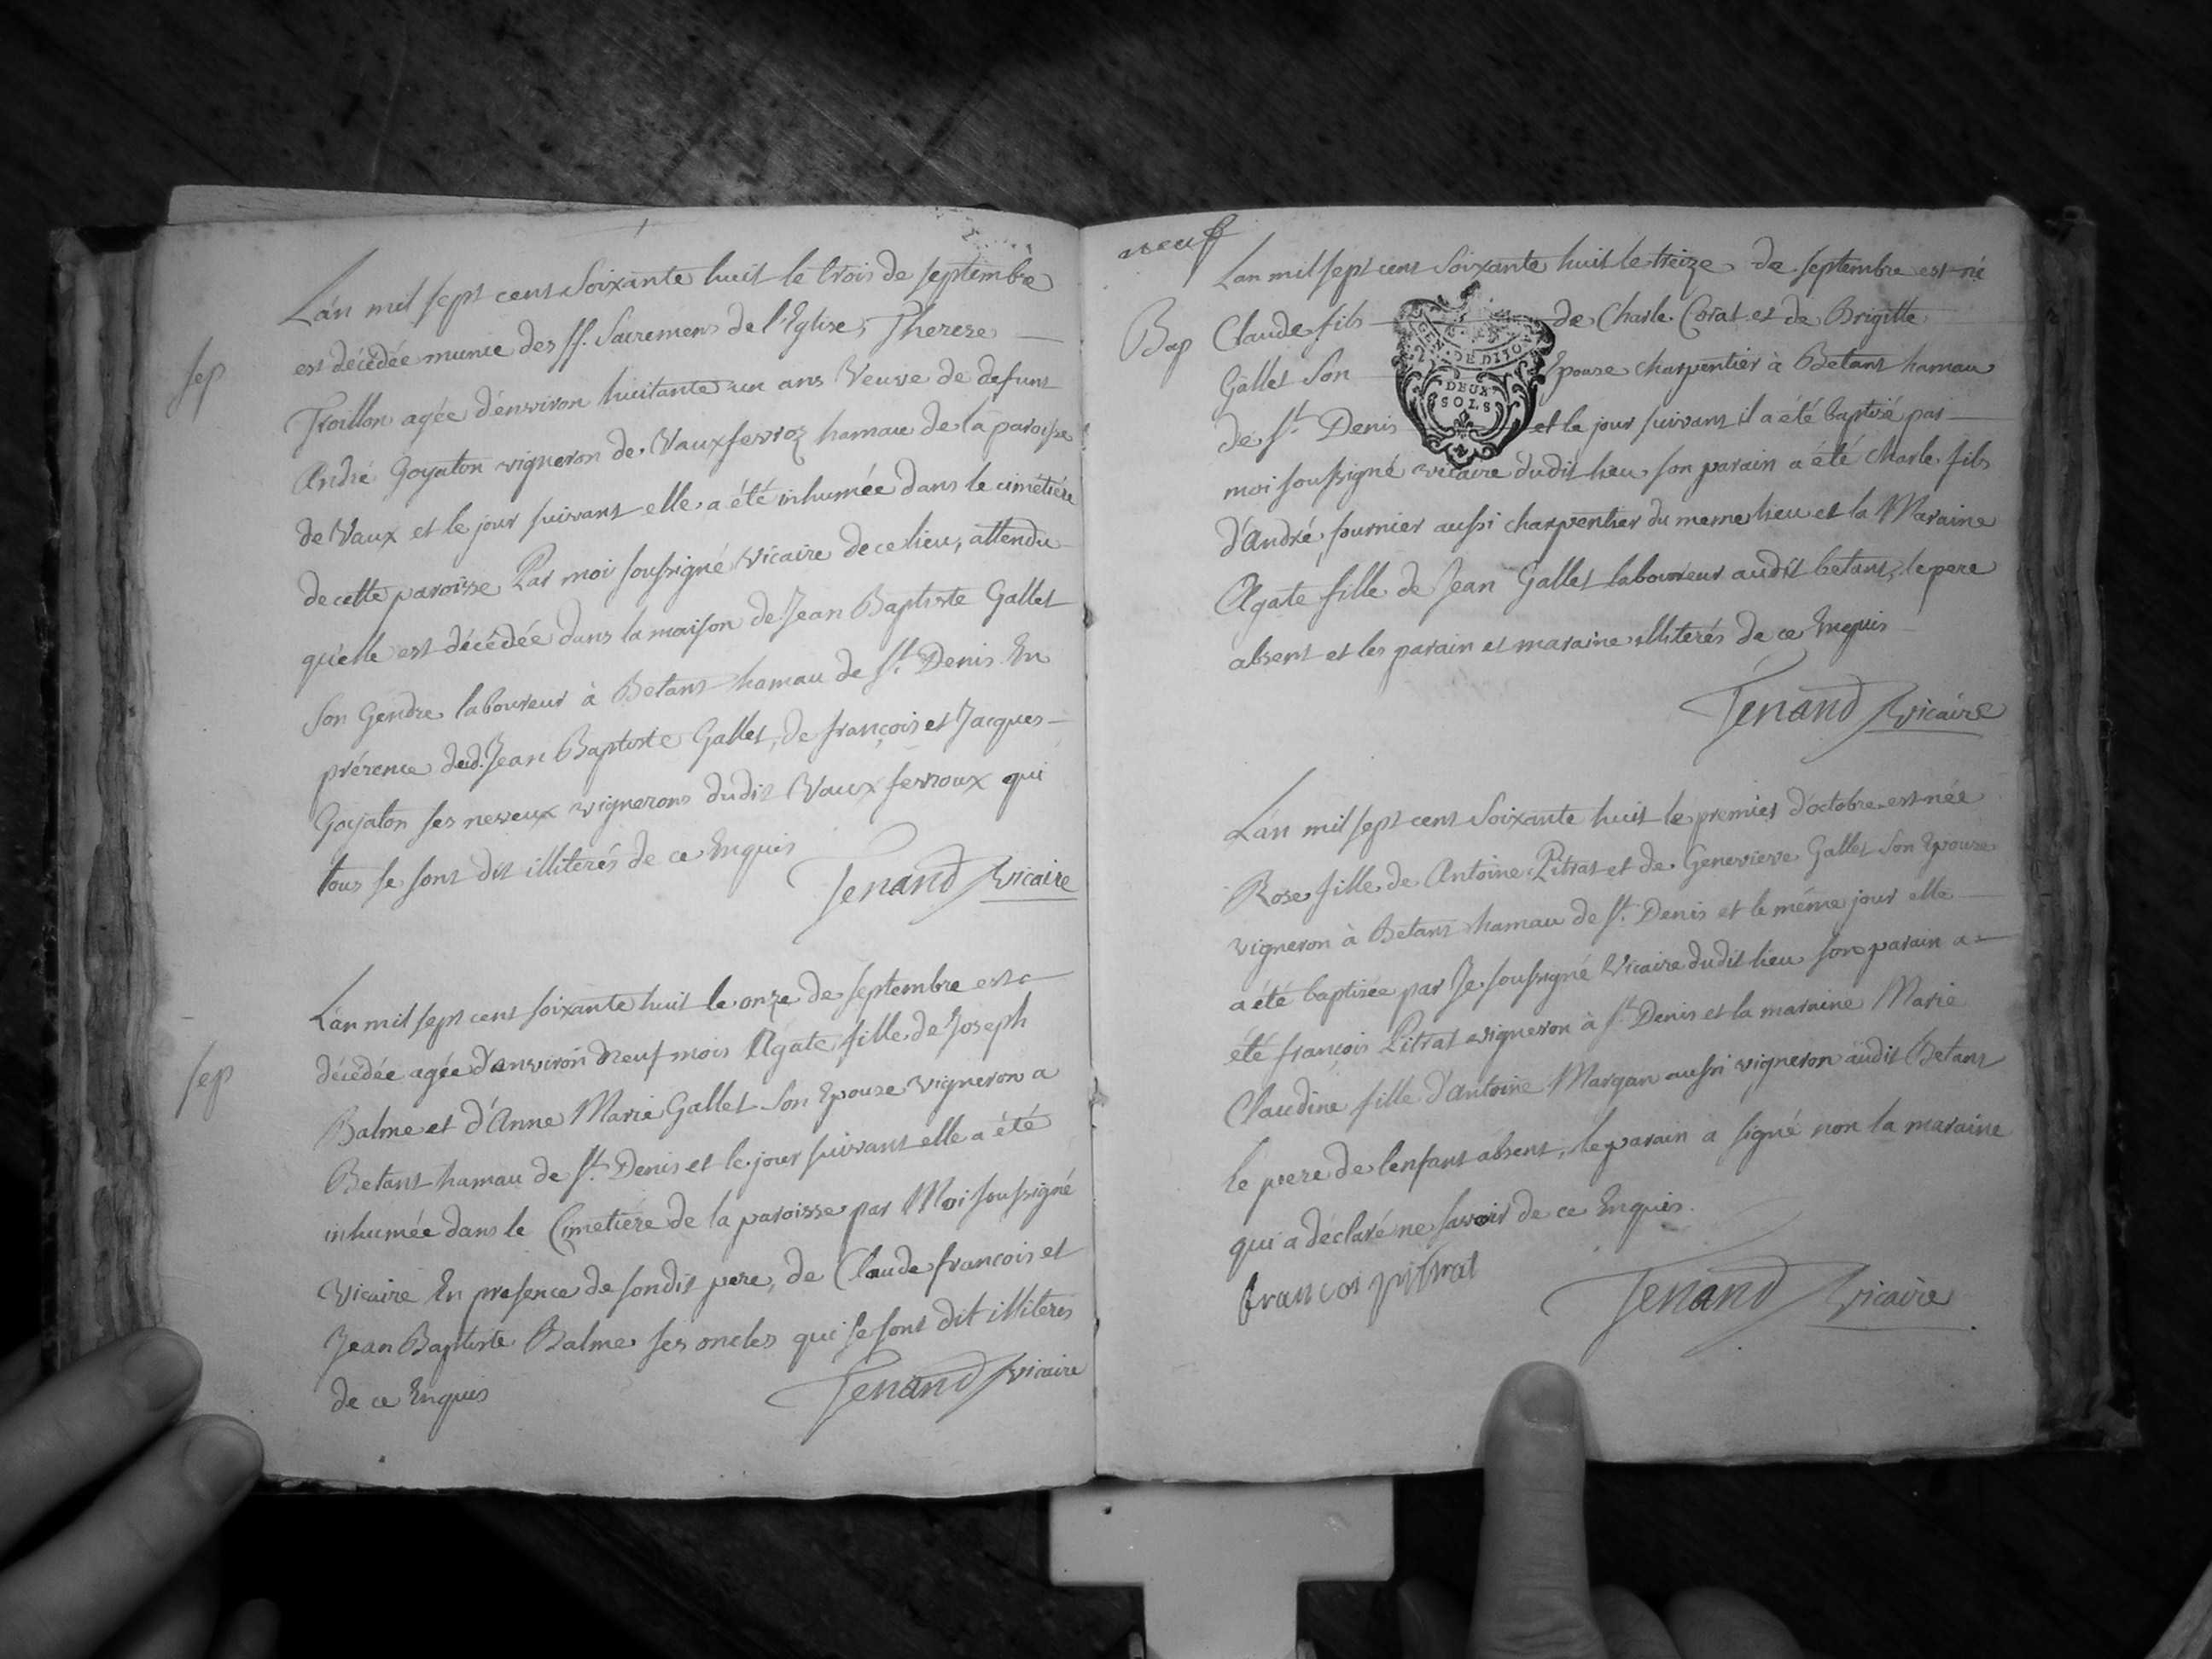 L'an mil sept cent soixante huit le trois de septembre
sep
est décédée munie des SS. Sacremens de l'Eglise, Therese
Troillon agée d'environ huitante un ans Veuve de defunt
André Goyaton vigneron de Vauxferroz hamau de la paroisse
de Vaux et le jour suivant elle a été inhumée dans le cimetière
de cette paroisse Par moi soussigné Vicaire de ce lieu, attendu
qu'elle est décédée dans la maison de Jean Baptiste Gallet
son Gendre laboureur à Betant hamau de St. Denis En
présence dud. Jean Baptiste Gallet, de françois et Jacques
Goyaton ses neveux vignerons dudit Vaux ferroux qui
tous se sont dit illiterés de ce Enquis
Tenand Vicaire
L'an mil sept cent soixante huit le onze de septembre est
sep
décédée agée d'environ neuf mois Agate fille de Joseph
Balme et d'Anne Marie Gallet son Epouse vigneron a
Betant hamau de St. Denis et le jour suivant elle a été
inhumée dans le Cimetière de la paroisse par Moi soussigné
Vicaire En presence de sondit pere, de Claude françois et
Jean Baptiste Balme ses oncles qui se sont dit illiterés
de ce Enquis
Tenand Vicaire
neuf
L'an mil sept cent soixante huit le treize de septembre est né
Bap
Claude fils de Charle Corat et de Brigitte
Gallet son Epouse charpentier à Betant hamau
de St. Denis et le jour suivant il a été baptisé par
moi soussigné vicaire dudit lieu son parain a été Charle fils
d'André fournier aussi charpentier du meme lieu et la Maraine
Agate fille de Jean Gallet laboureur audit betant, le pere
absent et les parain et maraine illiterés de ce Enquis
Tenand Vicaire
GEN. DE DIJON
DEUX
SOLS
L'an mil sept cent soixante huit le premier d'octobre est née
Rose fille de Antoine Pitrat et de Genevieve Gallet son Epouse
vigneron à Betant hamau de St. Denis et le même jour elle
a été baptisée par Je soussigné Vicaire dudit lieu son parain a
été françois Pitrat vigneron à St. Denis et la maraine Marie
Claudine fille d'Antoine Margan aussi vigneron audit Betant
le pere de l'enfant absent, le parain a signé non la maraine
qui a déclaré ne savoir de ce Enquis.
francois pitrat
Tenand Vicaire